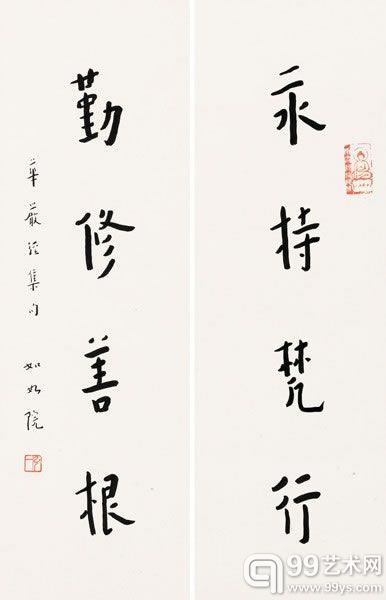 永持梵行
勤修善根
華嚴經集句 如如院
99艺术网
www.99ys.com